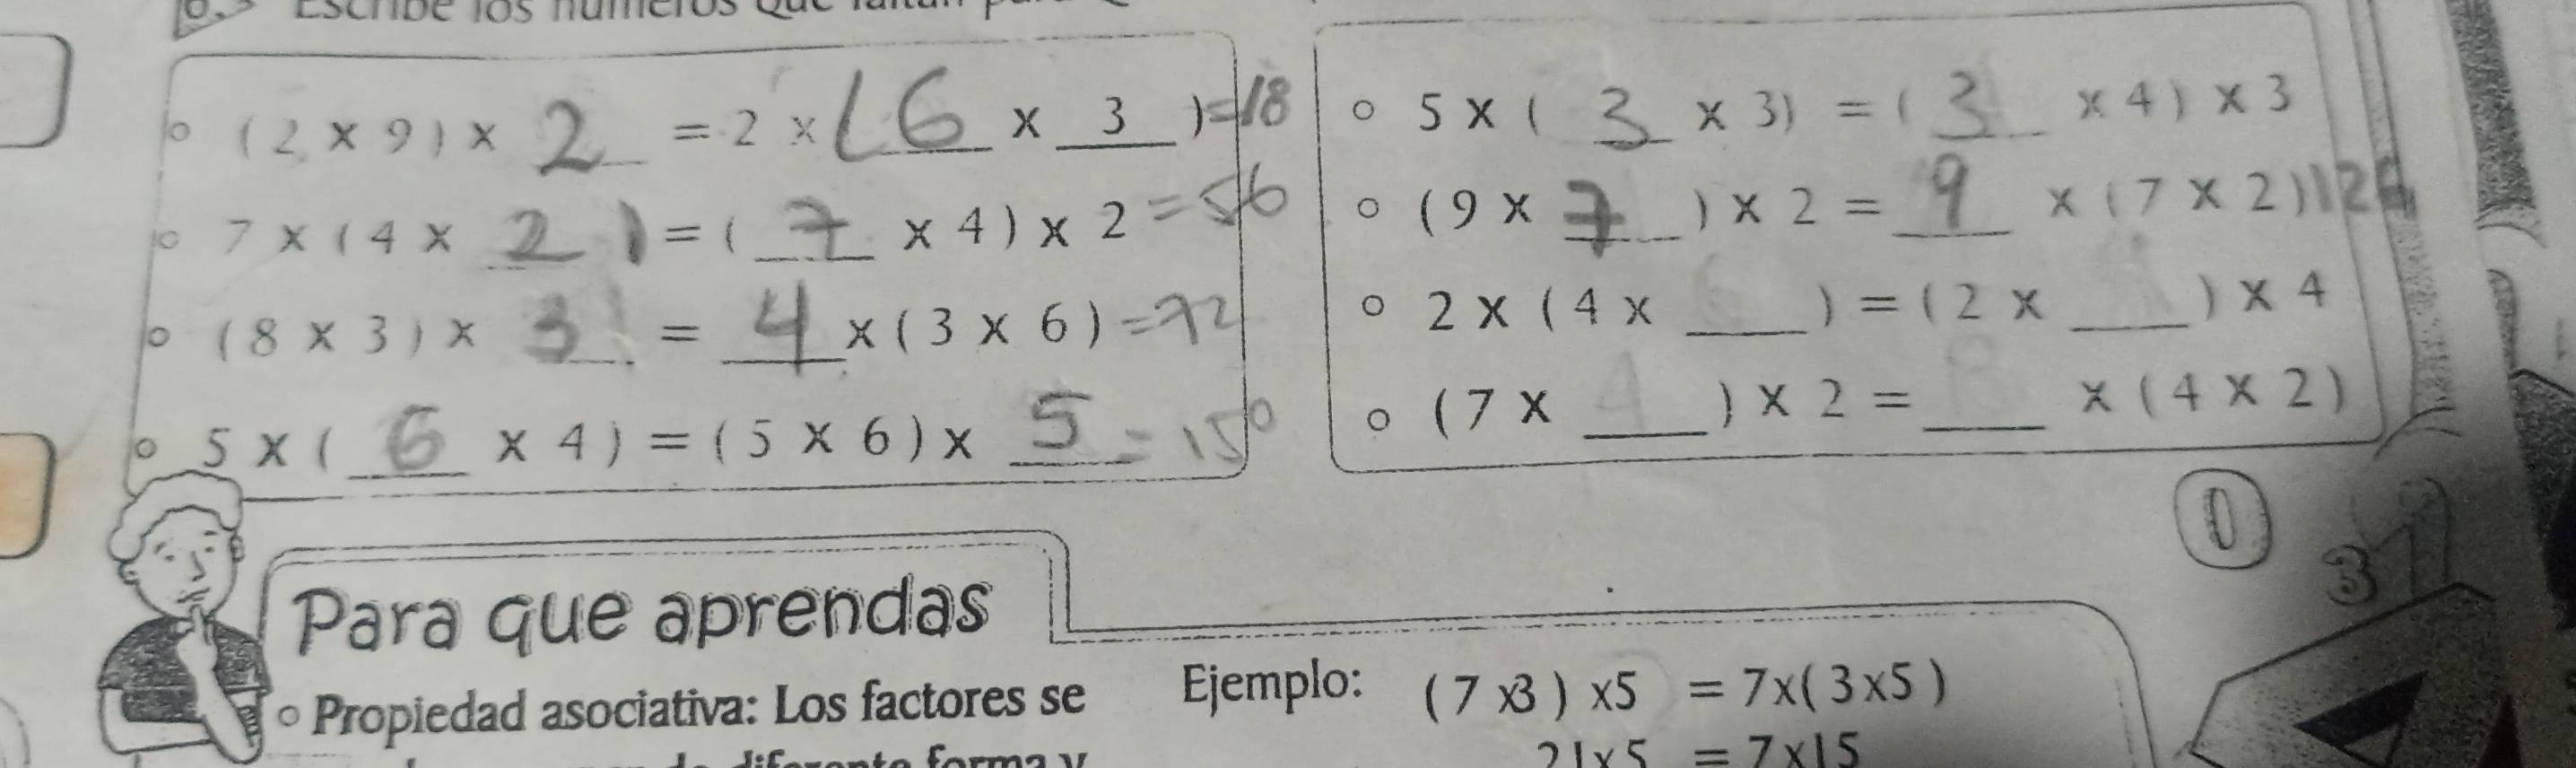 Escribe los números que faltan
(2 × 9) × 2 = 2 × (6 × 3) = 18
7 × (4 × 2) = (7 × 4) × 2 = 56
(8 × 3) × 3 = 4 × (3 × 6) = 72
5 × (6 × 4) = (5 × 6) × 5 = 150
5 × (3 × 3) = (3 × 4) × 3
(9 × 7) × 2 = 9 × (7 × 2) 126
2 × (4 × ___) = (2 × ___) × 4
(7 × ___) × 2 = ___ × (4 × 2)
0
37
Para que aprendas
Propiedad asociativa: Los factores se
diferente forma y
Ejemplo: (7 x3) x5 = 7x(3x5)
21x5 = 7x15